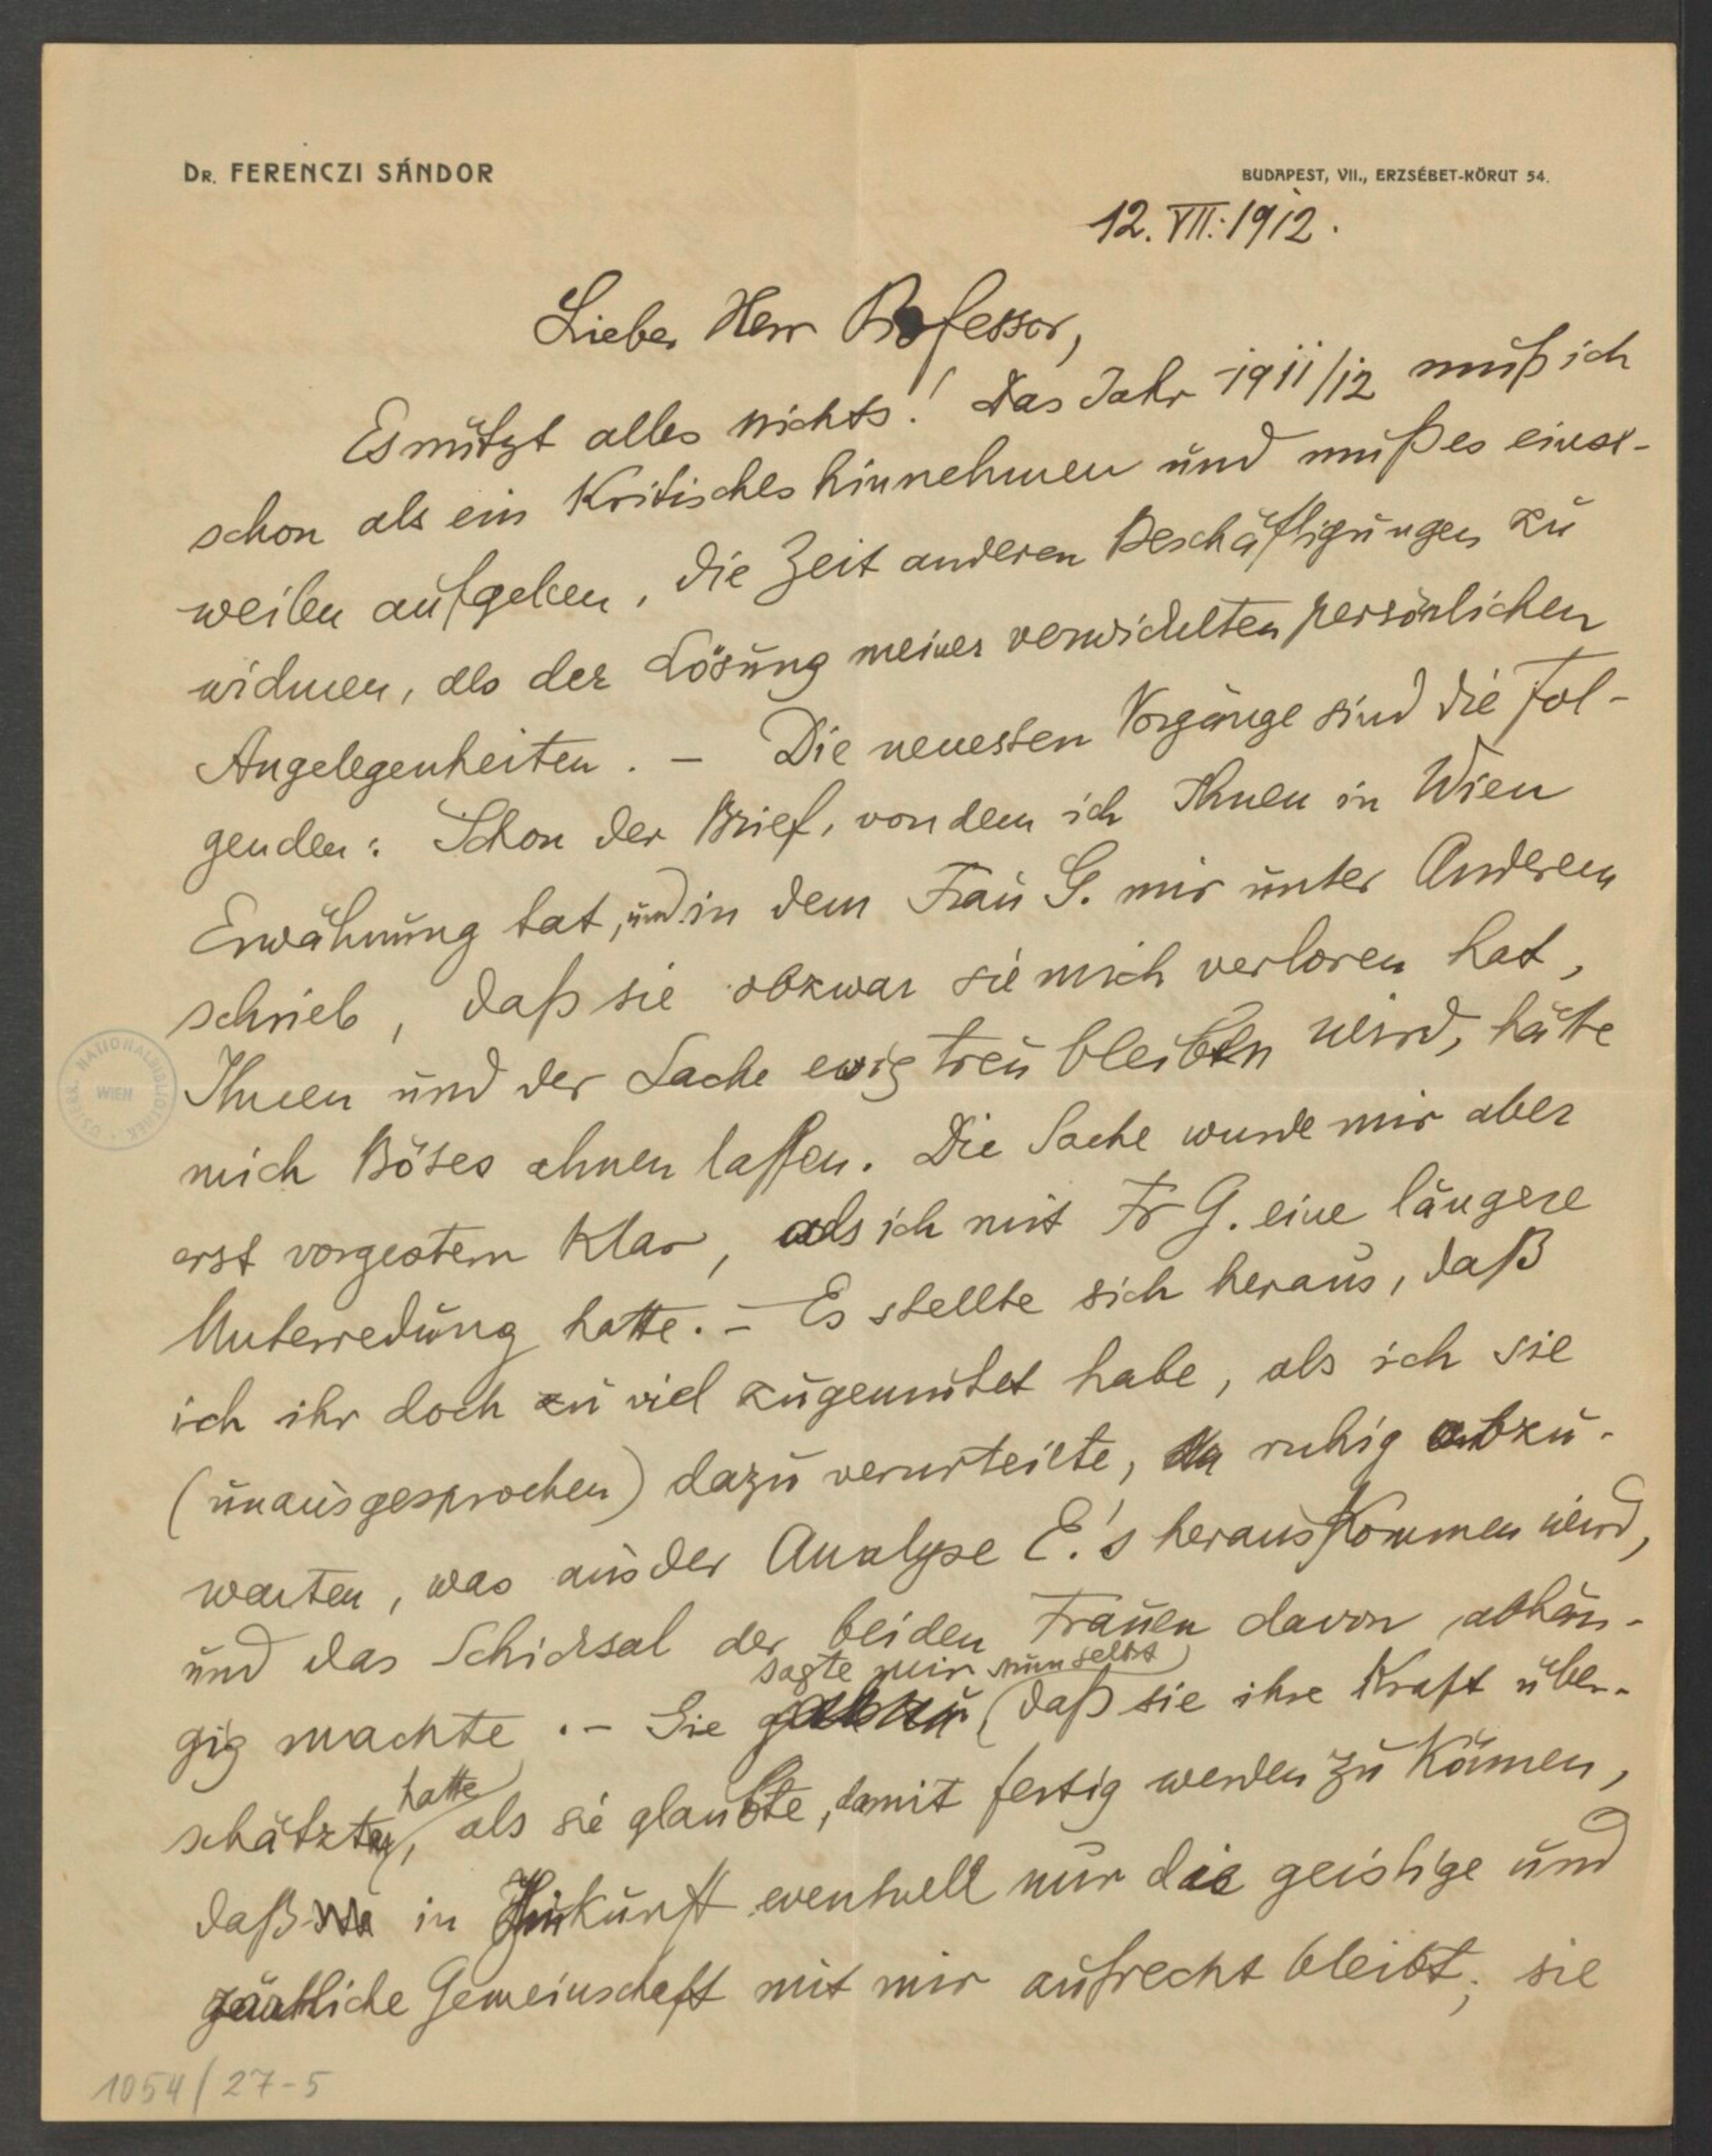 DR. FERENCZI SÁNDOR
BUDAPEST, VII., ERZSÉBET-KÖRUT 54.
12. VII. 1912.
Lieber Herr Professor,
Es nützt alles nichts! Das Jahr 1911/12 muß ich
schon als ein Kritisches hinnehmen und muß es einst-
weilen aufgeben, die Zeit anderen Beschäftigungen zu
widmen, als der Lösung meiner verwickelten persönlichen
Angelegenheiten. – Die neuesten Vorgänge sind die fol-
genden: Schon der Brief, von dem ich Ihnen in Wien
Erwähnung tat, und in dem Frau G. mir unter Anderem
schrieb, daß sie obzwar sie mich verloren hat,
Ihnen und der Sache ewig treu bleiben wird, hätte
mich Böses ahnen lassen. Die Sache wurde mir aber
erst vorgestern Klar, als ich mit Fr G. eine längere
Unterredung hatte. – Es stellte sich heraus, daß
ich ihr doch zu viel zugemutet habe, als ich sie
(unausgesprochen) dazu verurteilte, ruhig abzu-
warten, was aus der Analyse E.'s herauskommen wird,
und das Schicksal der beiden Frauen davon abhän-
gig machte. – Sie sagte mir nun selbst daß sie ihre Kraft über-
schätzt hatte, als sie glaubte, damit fertig werden zu Können,
daß in Zukunft eventuell nur die geistige und
zärtliche Gemeinschaft mit mir aufrecht bleibt; sie
ÖSTERR. NATIONALBIBLIOTHEK WIEN
1054/27-5